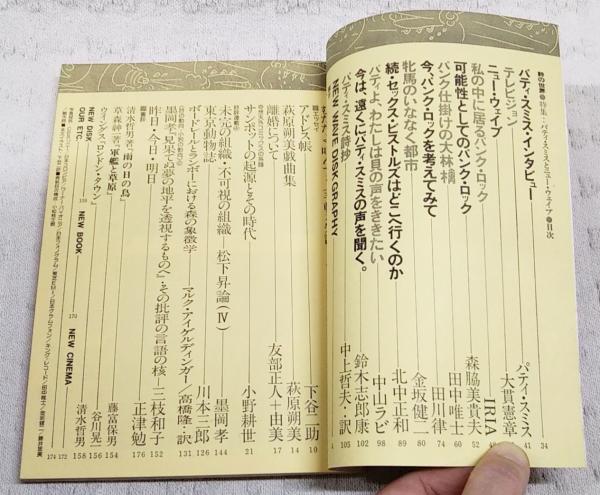 粋の世界●特集:パティ・スミスとニュー・ウェイブ●目次
パティ・スミス・インタビュー パティ・スミス 34
テレビジョン 大貫憲章 41
ニュー・ウェイブ IRIA
私の中に居るパンク・ロック 森脇美貴夫 52
可能性としてのパンク・ロック 田中唯士 60
パンク仕掛けの大林檎 田川律 74
今、パンク・ロックを考えてみて 金坂健二 80
牝馬のいななく都市 北中正和 89
続・セックス・ピストルズはどこへ行くのか 中山ラビ 98
パティよ、わたしは貝の声をききたい 鈴木志郎康 102
今は、遠くにパティ・スミスの声を聞く。 中上哲夫・訳 105
パティ・スミス詩抄
NEW WAVE DISK GRAPHY
アドレス帳 下谷二助 10
萩原朔美戯曲集 萩原朔美 14
離婚について 友部正人+由美 17
サンポットの起源とその時代 小野耕世 21
未完の組織・不可視の組織 松下昇論(Ⅳ) 墨岡孝 144
東京動物誌 川本三郎 126
ボードレールとランボーにおける森の象徴学 マルク・アイゲルディンガー/高橋隆・訳 131
墨岡孝〝見果てぬ夢の地平を透視するものへ〟・その批評の言語の核 三枝和子 152
昨日・今日・明日 正津勉 176
■書評
清水哲男著〝雨の日の鳥〟 藤富保男 154
草森紳一著〝軍艦と草原〟 谷川晃一 156
ウィングス〝ロンドン・タウン〟 清水哲男 158
NEW DISK 159
NEW BOOK 170
NEW CINEMA 172
OUR ETC. 174